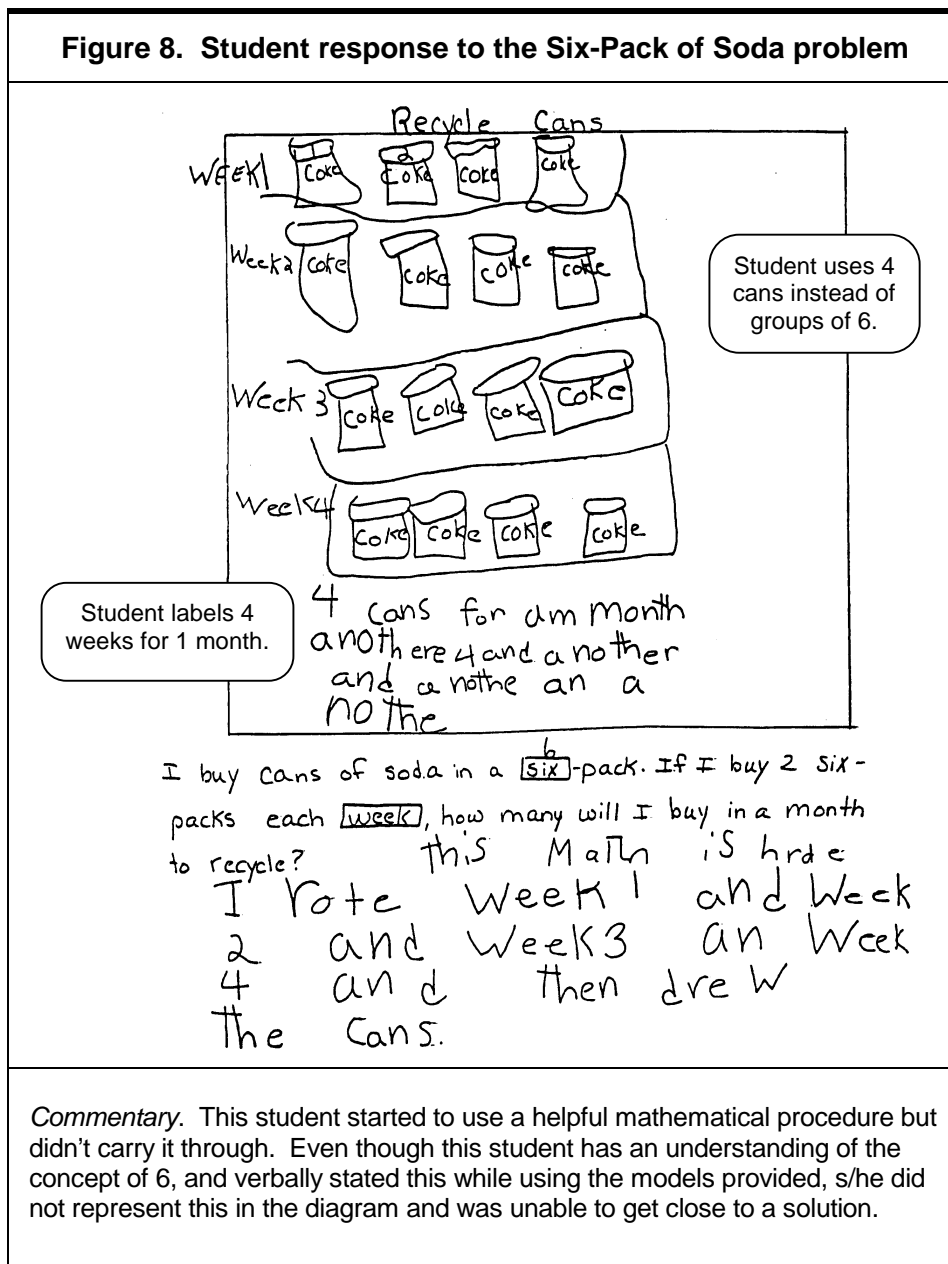 Figure 8. Student response to the Six-Pack of Soda problem
Recycle Cans
WEEK1 Coke 2 Coke Coke Coke
Week2 Coke Coke Coke Coke
Student uses 4
cans instead of
groups of 6.
Week 3 Coke Coke Coke Coke
Week4 Coke Coke Coke Coke
Student labels 4
weeks for 1 month.
4 cans for am month
anothere 4 and another
and a nothe an a
nothe
6
I buy cans of soda in a six-pack. If I buy 2 six-
packs each week, how many will I buy in a month
to recycle? this Math is hrde
I rote Week 1 and Week
2 and Week3 an Week
4 and then drew
the Cans.
Commentary. This student started to use a helpful mathematical procedure but
didn't carry it through. Even though this student has an understanding of the
concept of 6, and verbally stated this while using the models provided, s/he did
not represent this in the diagram and was unable to get close to a solution.